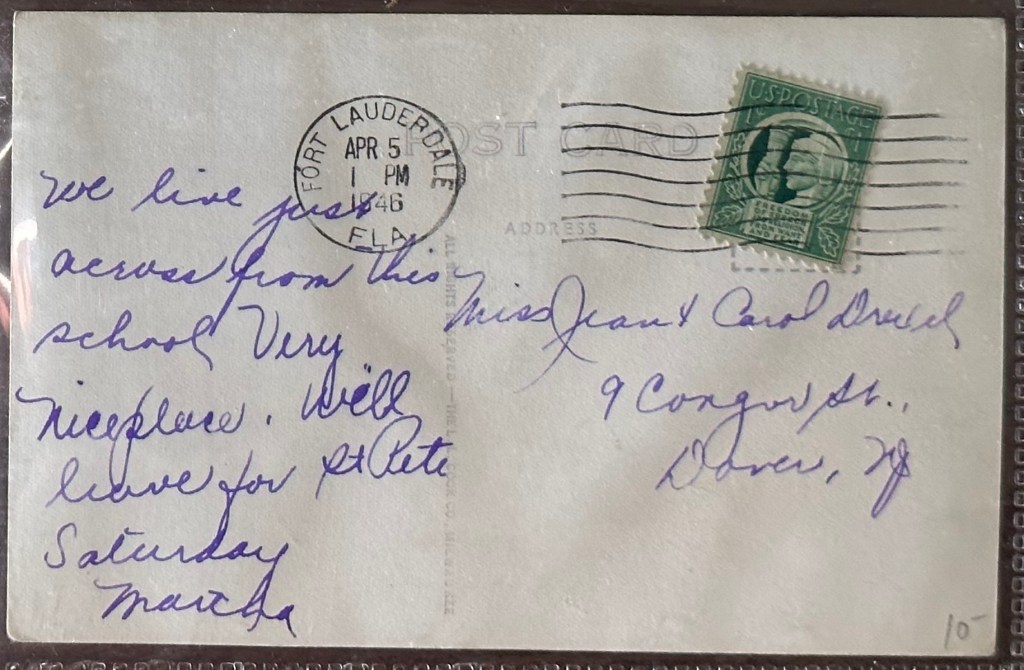 POST CARD
FORT LAUDERDALE
APR 5
1 PM
1946
FLA.
U.S. POSTAGE
1¢ 1¢
FREEDOM
OF SPEECH
AND RELIGION
FROM WANT
AND FEAR
ADDRESS
ALL RIGHTS RESERVED—THE L. L. COOK CO., MILWAUKEE
We live just
across from this
school Very
nice place. Will
leave for St Pete
Saturday
Martha
Miss Jean & Carol Drexel
9 Conger St.,
Dover, NJ
10-